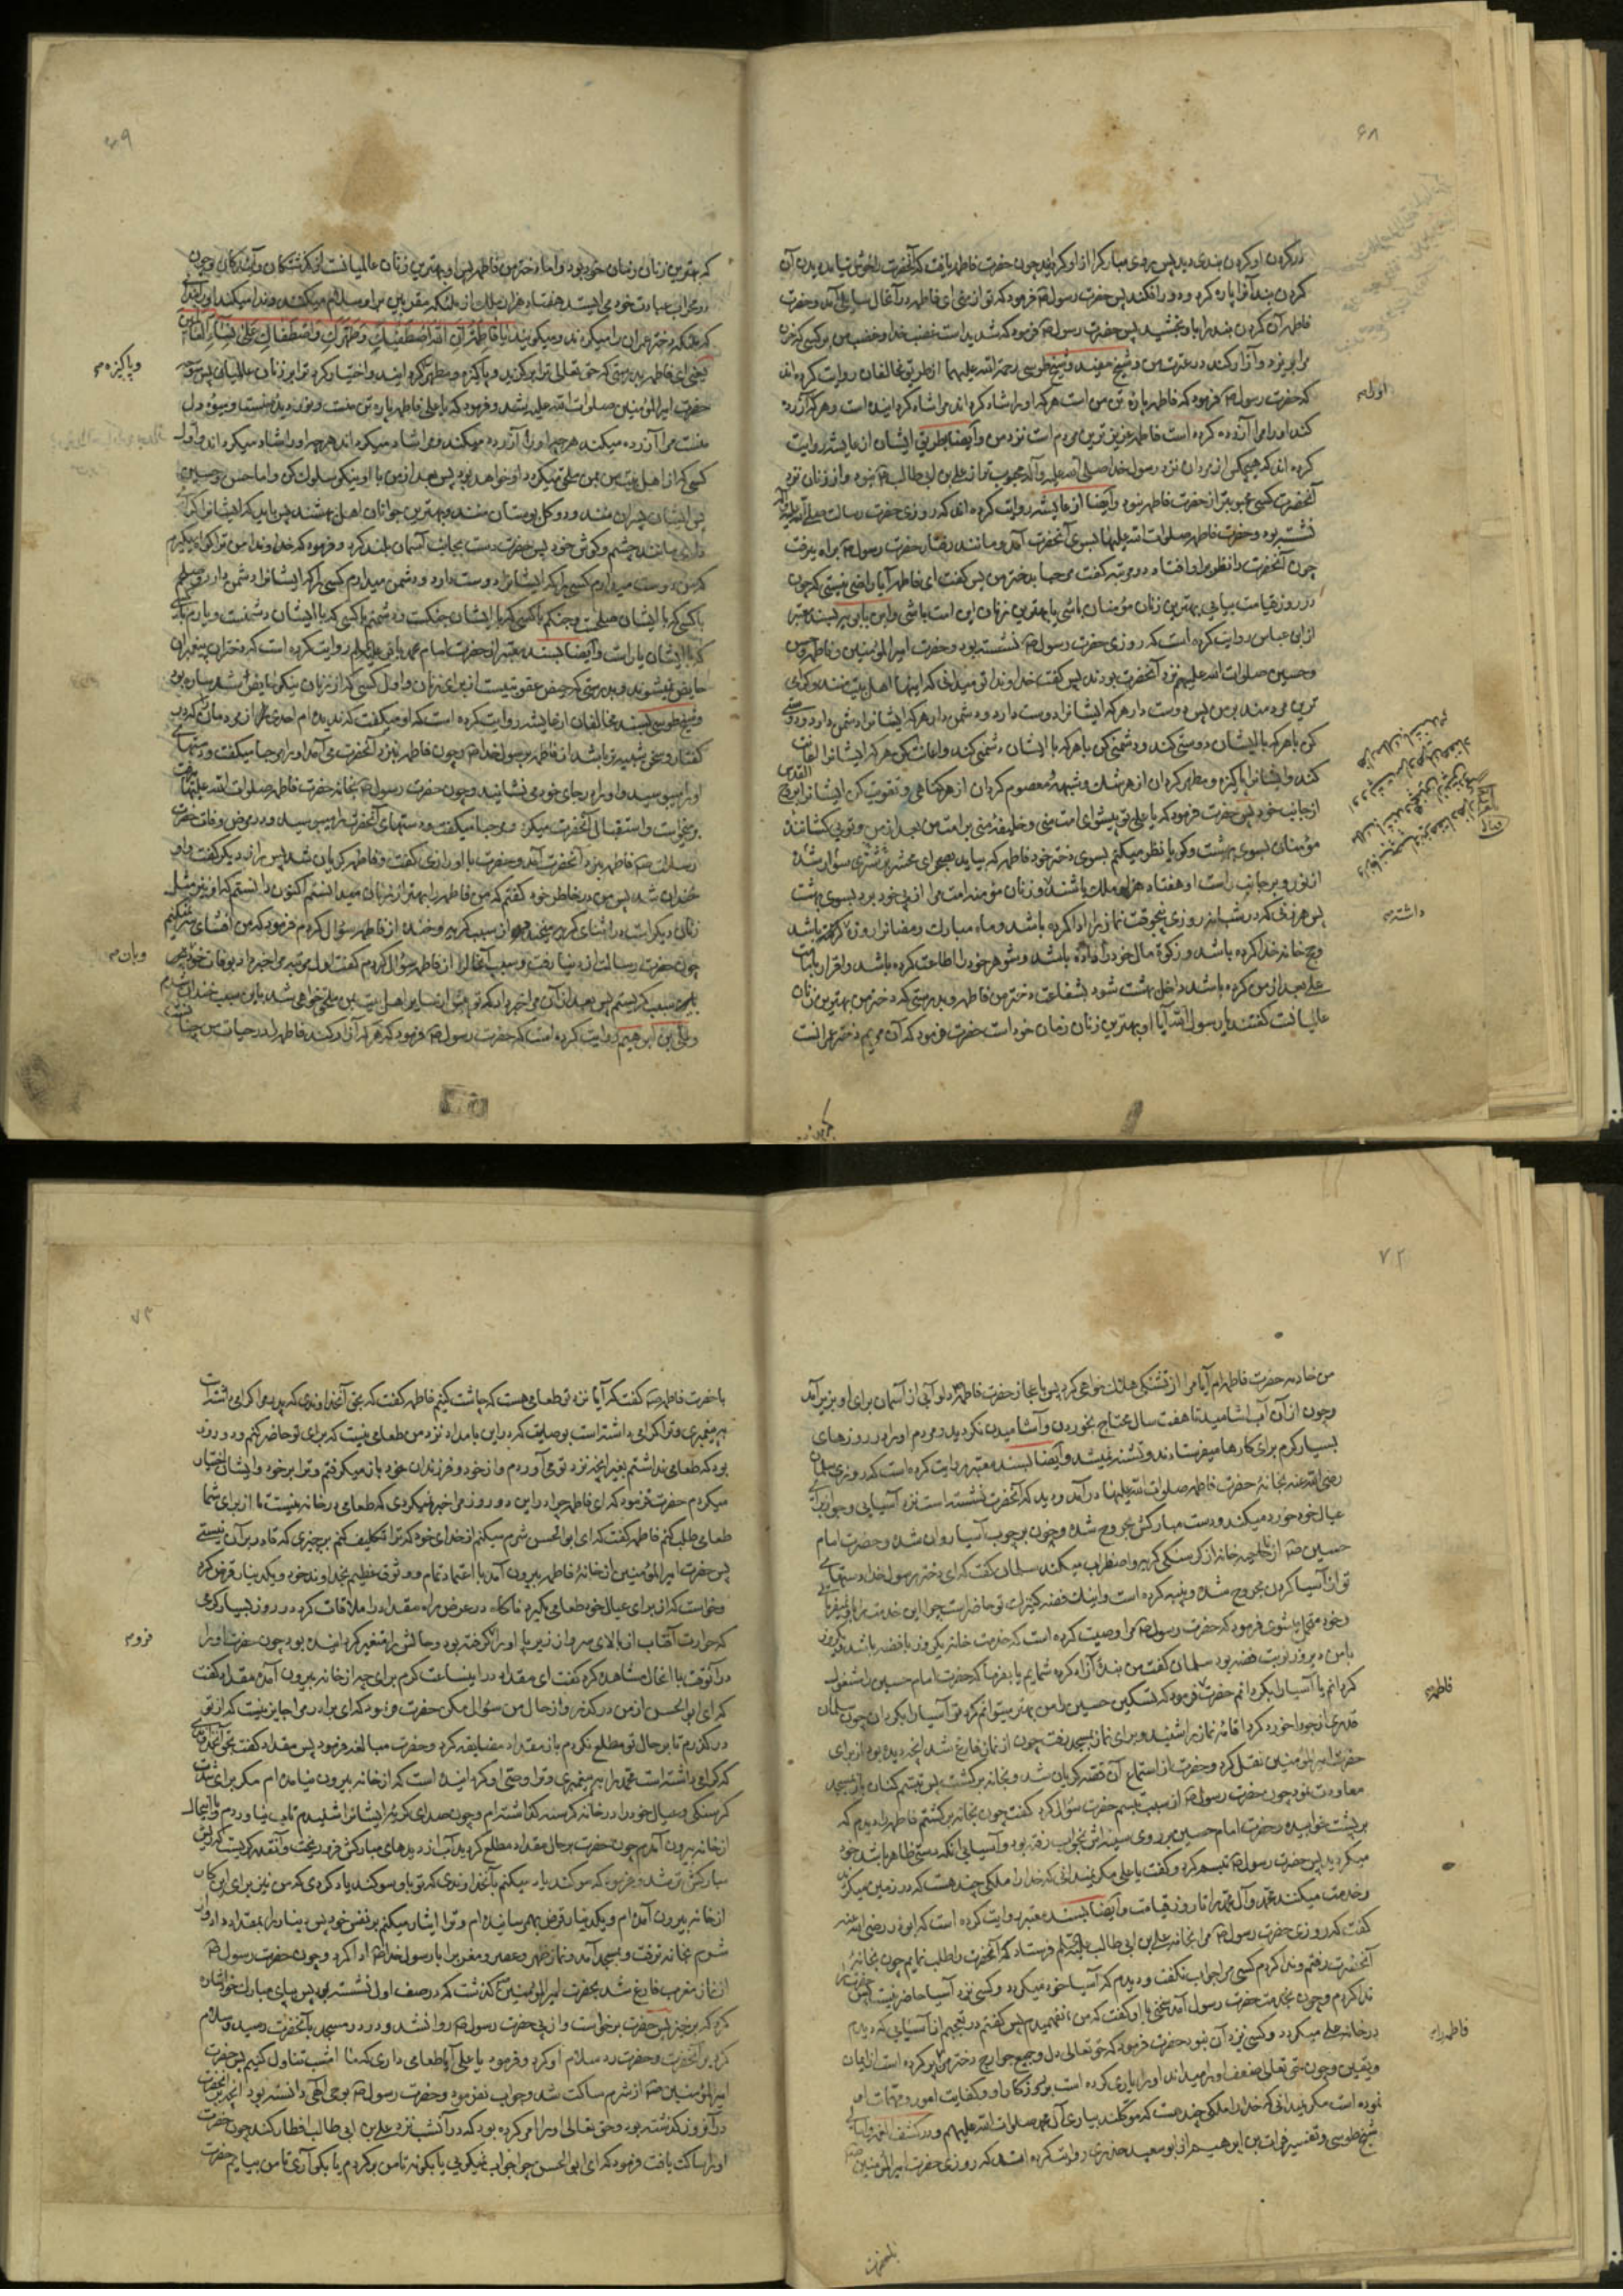 ۶۸
در گردن او گردن بندی دید پس روی مبارک را از او گردانید چون حضرت فاطمه یافت که آنحضرت را خوش نیامد بدیدن آن
گردن بند آنرا پاره کرد و دور افکند پس حضرت رسول ص فرمود که تو از منی ای فاطمه در آنحال سایلی آمد و حضرت
فاطمه آن گردن بند را باو بخشید پس حضرت رسول ص فرمود که شدید است غضب خدا و غضب من بر کسی که خون
مرا بریزد و آزار کند در عترت من و شیخ مفید و شیخ طوسی رحمة الله علیهما از طریق مخالفان روایت کرده اند
که حضرت رسول ص فرمود که فاطمه پاره تن من است هر که او را شاد کرداند مرا شاد کردانیده است و هر که آزرده
کند او را مرا آزرده کرده است فاطمه عزیزترین مردم است نزد من و ایضا بطریق ایشان از عایشه روایت
کرده اند که هیچکس از مردان نزد رسول خدا صلی الله علیه وآله محبوب تر از علی بن ابی طالب ع نبود و از زنان نزد
آنحضرت کسی محبوبتر از حضرت فاطمه نبود و ایضا از عایشه روایت کرده اند که روزی حضرت رسالت صلی الله علیه وآله
نشسته بود و حضرت فاطمه صلوات الله علیها بسوی آنحضرت آمد و مانند رفتار حضرت رسول ص براه میرفت
چون آنحضرت را نظر بر او افتاد دو مرتبه گفت مرحبا بدختر من پس گفت ای فاطمه آیا راضی نیستی که چون
در روز قیامت بیایی بهترین زنان مؤمنان باشی یا بهترین زنان این امت باشی و ابن بابویه بسند معتبر
از ابن عباس روایت کرده است که روزی حضرت رسول ص نشسته بود و حضرت امیرالمؤمنین و فاطمه و حسن
و حسین صلوات الله علیهم نزد آنحضرت بودند پس گفت خداوندا تو میدانی که اینها اهل بیت منند و گرامی
ترین مردمند بر من پس دوست دار هر که ایشانرا دوست دارد و دشمن دار هر که ایشانرا دشمن دارد و دوستی
کن با هر که با ایشان دوستی کند و دشمنی کن با هر که با ایشان دشمنی کند و اعانت کن هر که ایشانرا اعانت
کند و ایشانرا پاکیزه و مطهر گردان از هر شک و شبهه و معصوم گردان از هر گناهی و تقویت کن ایشانرا بروح القدس
از جانب خود پس حضرت فرمود که یا علی تو پیشوای امت منی و خلیفه منی بر امت من بعد از من و تویی کشاننده
مؤمنان بسوی بهشت و گویا نظر میکنم بسوی دختر خود فاطمه که بیاید بصحرای محشر بر شتری سوار شده
از نور و بر جانب راست او هفتاد هزار ملک باشند و زنان مؤمنه امت مرا از پی خود برد بسوی بهشت
پس هر زنی که در شبانه روزی پنجوقت نماز را ادا کرده باشد و ماه مبارک رمضانرا روزه گرفته باشد
و حج خانه خدا کرده باشد و زکوة مال خود را داده باشد و شوهر خود را اطاعت کرده باشد و اقرار بامامت
علی بعد از من کرده باشد داخل بهشت شود بشفاعت دختر من فاطمه و بدرستی که دختر من بهترین زنان
عالمیانست گفتند یا رسول الله آیا او بهترین زنان زمان خود است حضرت فرمود که آن مریم دختر عمرانست
اول م
داشته م
۶۹
که بهترین زنان زمان خود بود و اما دختر من فاطمه پس او بهترین زنان عالمیانست از گذشتگان و آیندگان و چون
در محراب عبادت خود می ایستد هفتاد هزار ملک از ملائکه مقربین بر او سلام میکنند و ندا میکنند او را بندایی
که ملائکه دختر عمران را میکردند و میگویند یا فاطمة ان الله اصطفیک وطهرک واصطفاک علی نساء العالمین
یعنی ای فاطمه بدرستی که حق تعالی ترا برگزیده و پاکیزه و مطهر گردانید و اختیار کرد ترا بر زنان عالمیان پس متوجه
حضرت امیرالمؤمنین صلوات الله علیه شد و فرمود که یا علی فاطمه پاره تن منست و نور دیده منست و میوه دل
منست مرا آزرده میکند هر چه او را آزرده میکند و مرا شاد میکرداند هر چه او را شاد میکرداند و اول
کسی که از اهل بیت من بمن ملحق میکردد او خواهد بود پس بعد از من با او نیکو سلوک کن و اما حسن و حسین
پس ایشان پسران منند و دو گل بوستان منند و بهترین جوانان اهل بهشتند پس باید که ایشانرا گرامی
داری مانند چشم و گوش خود پس حضرت دست بجانب آسمان بلند کرد و فرمود که خداوندا من ترا گواه میگیرم
که من دوست میدارم کسی را که ایشانرا دوست دارد و دشمن میدارم کسی را که ایشانرا دشمن دارد و صلحم
با کسی که با ایشان صلحست و جنگم با کسی که با ایشان جنگست و دشمنم با کسی که با ایشان دشمنست و یارم با کسی
که با ایشان یارست و ایضا بسند معتبر از حضرت امام محمد باقر علیه السلام روایت کرده است که دختران پیغمبران
حایض نمیشوند و بدرستی که حیض عقوبتیست از برای زنان و اول کسی که از زنان پیغمبران حایض شد ساره بود
و شیخ طوسی بسند مخالفان از عایشه روایت کرده است که او میگفت که ندیده ام احدی را از مردمان که در
گفتار و سخن شبیه تر باشد از فاطمه برسول خدا ص و چون فاطمه بنزد آنحضرت می آمد او را مرحبا میگفت و دستهای
او را میبوسید و او را در جای خود می نشانید و چون حضرت رسول ص بخانه حضرت فاطمه صلوات الله علیها میرفت
برمیخواست و استقبال آنحضرت میکرد و مرحبا میگفت و دستهای آنحضرت را میبوسید و در مرض وفات حضرت
رسالت ص فاطمه بنزد آنحضرت آمد و حضرت با او رازی گفت و فاطمه گریان شد پس راز دیگر گفت و او
خندان شد پس من در خاطر خود گفتم که من فاطمه را بهتر از زنان میدانستم اکنون دانستم که او نیز مثل
زنان دیگر است در اثنای گریه میخندد از سبب گریه و خنده از فاطمه سؤال کردم فرمود که من افشای سر نمیکنم
چون حضرت رسالت از دنیا رفت و سبب آنحال را از فاطمه سؤال کردم گفت اول مرتبه مرا خبر داد بوفات خود
باین سبب گریستم پس بعد از آن مرا خبر داد که تو پیش از سایر اهل بیت بمن ملحق خواهی شد باین سبب خندان شدم
و علی بن ابراهیم روایت کرده است که حضرت رسول ص فرمود که هر که آزار کند فاطمه را در حیات من چنانست
و پاکیزه م
و بان م
۷۲
من خادمه حضرت فاطمه ام آیا مرا از تشنگی هلاک خواهی کرد پس باعجاز حضرت فاطمه دلو آبی از آسمان برای او بزیر آمد
و چون از آن آب آشامید تا هفت سال محتاج بخوردن و آشامیدن نگردید و مردم او را در روزهای
بسیار گرم برای کارها میفرستادند و تشنه نمیشد و ایضا بسند معتبر روایت کرده است که روزی سلمان
رضی الله عنه بخانه حضرت فاطمه صلوات الله علیها در آمد و دید که آنحضرت نشسته است نزد آسیایی و جو از برای
عیال خود خورد میکند و دست مبارکش مجروح شده و خون بر چوب آسیا روان شده و حضرت امام
حسین ع از ناحیه خانه از گرسنگی گریه و اضطراب میکند سلمان گفت که ای دختر رسول خدا دستهای
تو از آسیا کردن مجروح شده و پینه کرده است و اینک فضه کنیزک تو حاضر است چرا این خدمت را باو نمیفرمایی
و خود متحمل میشوی فرمود که حضرت رسول ص مرا وصیت کرده است که خدمت خانه یکروز با فضه باشد و یکروز
با من دیروز نوبت فضه بود سلمان گفت من بنده آزاد کرده شمایم یا بفرما که حضرت امام حسین را مشغول
کردانم یا آسیا را بگردانم حضرت فرمود که تسکین حسین را من بهتر میتوانم کرد تو آسیا را بگردان چون سلمان
قدری از جو را خورد کرد اقامه نماز را شنید و برای نماز بمسجد رفت چون از نماز فارغ شد آنچه دیده بود از برای
حضرت امیرالمؤمنین نقل کرد و حضرت از استماع آن قصه گریان شد و بخانه برگشت پس تبسم کنان بمسجد
معاودت نمود چون حضرت رسول ص از سبب تبسم حضرت سؤال کرد گفت چون بخانه برگشتم فاطمه را دیدم که
بر پشت خوابیده و حضرت امام حسین بر روی سینه اش بخواب رفته بود و آسیا بی آنکه دستی ظاهر باشد خود
میگردید پس حضرت رسول ص تبسم کرد و گفت یا علی مگر نمیدانی که خدا را ملکی چند هست که در زمین میگردند
و خدمت میکنند محمد و آل محمد را تا روز قیامت و ایضا بسند معتبر روایت کرده است که ابوذر رضی الله عنه
گفت که روزی حضرت رسول ص مرا بخانه علی بن ابی طالب علیه السلام فرستاد که آنحضرت را طلب نمایم چون بخانه
آنحضرت رفتم و ندا کردم کسی مرا جواب نگفت و دیدم که آسیا خود میگردد و کسی نزد آسیا حاضر نیست پس
ندا کردم و چون بخدمت حضرت رسول آمد سخنی با او گفت که من نفهمیدم پس گفتم در تعجبم از آسیایی که دیدم
در خانه علی میگردد و کسی نزد آن نبود حضرت فرمود که حق تعالی دل و جمیع جوارح دختر مرا پر کرده است از ایمان
و یقین و چون حق تعالی ضعف او را میداند او را یاری کرده است بر روزگار او و کفایت امور و مهمات او
نموده است مگر نمیدانی که خدا را ملکی چند هست که موکلند بیاری آل محمد صلوات الله علیهم و در کشف الغمه و امالی
شیخ طوسی و تفسیر فرات بن ابراهیم از ابو سعید خدری روایت کرده اند که روزی حضرت امیرالمؤمنین
فاطمه
فاطمه را م
باحضرت
۷۳
با حضرت فاطمه ص گفت که آیا نزد تو طعامی هست که چاشت کنیم فاطمه گفت که بحق آنخداوندی که پدر مرا گرامی داشته است
به پیغمبری و ترا گرامی داشته است بوصایت که در این بامداد نزد من طعامی نیست که برای تو حاضر کنم و دو روز
بود که طعامی نداشتم بغیر آنچه نزد تو می آوردم و از خود و فرزندان خود باز میگرفتم و ترا بر خود و ایشان اختیار
میکردم حضرت فرمود که ای فاطمه چرا در این دو روز مرا خبر نمیکردی که طعامی در خانه نیست تا از برای شما
طعامی طلب کنم فاطمه گفت که ای ابوالحسن شرم میکنم از خدای خود که ترا تکلیف کنم بر چیزی که قادر بر آن نیستی
پس حضرت امیرالمؤمنین از خانه فاطمه بیرون آمد با اعتماد تمام و وثوق عظیم بخداوند خود و یکدینار قرض کرد
و خواست که از برای عیال خود طعامی بگیرد ناگاه در عرض راه مقداد را ملاقات کرد در روز بسیار گرمی
که حرارت آفتاب از بالای سر و از زیر پا او را گرفته بود و حالش را متغیر گردانیده بود چون حضرت او را
در آنوقت با آنحال مشاهده کرد گفت ای مقداد در اینساعت گرم برای چه از خانه بیرون آمده مقداد گفت
که ای ابوالحسن از من درگذر و از حال من سؤال مکن حضرت فرمود که ای برادر مرا جایز نیست که از تو
درگذرم تا بر حال تو مطلع نکردم باز مقداد مضایقه کرد و حضرت مبالغه فرمود پس مقداد گفت بحق آنخداوندی
که گرامی داشته است محمد را به پیغمبری و ترا وصی او گردانیده است که از خانه بیرون نیامده ام مگر برای شدت
گرسنگی و عیال خود را در خانه گرسنه گذاشته ام و چون صدای گریه ایشانرا شنیدم تاب نیاوردم و با اینحال
از خانه بیرون آمدم چون حضرت بر حال مقداد مطلع گردید آب از دیدهای مبارکش فرو ریخت و آنقدر گریست که ریش
مبارکش تر شد و فرمود که سوگند یاد میکنم بآنخداوندی که تو باو سوگند یاد کردی که من نیز برای این کار
از خانه بیرون آمده ام و یکدینار قرض بهم رسانیده ام و ترا ایثار میکنم بر نفس خود پس دینار را بمقداد داد و از
شرم بخانه نرفت و بمسجد آمد و نماز ظهر و عصر و مغرب را با رسول خدا ص ادا کرد و چون حضرت رسول ص
از نماز مغرب فارغ شد بحضرت امیرالمؤمنین گذشت که در صف اول نشسته بود پس بپای مبارک خود اشاره
کرد که برخیز پس حضرت برخواست و از پی حضرت رسول ص روانه شد و در در مسجد بآنحضرت رسید و سلام
کرد بر آنحضرت و حضرت رد سلام او کرد و فرمود یا علی آیا طعامی داری که ما امشب تناول کنیم پس حضرت
امیرالمؤمنین ع از شرم ساکت شد و جواب نفرمود و حضرت رسول ص بوحی الهی دانسته بود آنچه بر آنحضرت
در آنروز گذشته بود و حق تعالی او را امر کرده بود که در آنشب نزد علی بن ابی طالب افطار کند چون حضرت
او را ساکت یافت فرمود که ای ابی الحسن چرا جواب نمیگویی یا بگو نه تا من برگردم یا بگو آری تا من بیایم حضرت
فرو م